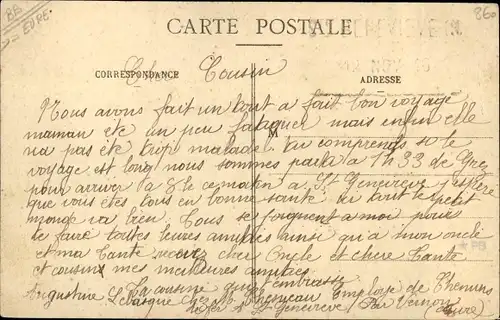 EURE
CARTE POSTALE
CORRESPONDANCE
ADRESSE
Cher Cousin
Nous avons fait un tout a fait bon voyage
maman été un peu fatiguer mais enfin elle
na pas été trop malade. tu comprends si le
voyage est long nous sommes partit a 1H33 de
pour arriver a 8h ce matin a Ste Geneviève j'espère
que vous êtes tous en bonne santé au tout le petit
monde va bien. Tous se joignent a moi pour
te faire toutes leurs amitiés ainsi qu'a mon oncle
et ma tante recevez cher Oncle et chère Tante
et cousins mes meilleures amitiés
ta cousine qui t'embrasse
Augustine Lebasque chez Mr employe de Chemins
de fer a Ste Geneviève Par Vernon (Eure)
M
860